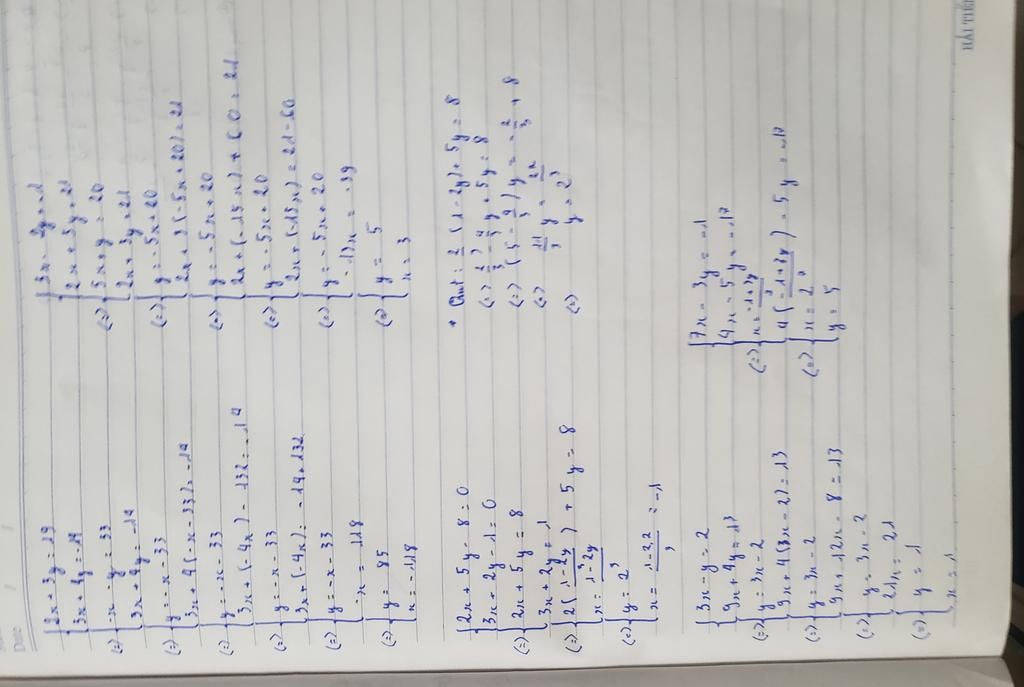 Date
{2x + 3y = 19
{3x + 4y = -14
(=) {-x - y = 33
{3x + 4y = -14
(=) {y = -x - 33
{3x + 4(-x - 33) = -14
(=) {y = -x - 33
{3x + (-4x) - 132 = -14
(=) {y = -x - 33
{3x + (-4x) = -14 + 132
(=) {y = -x - 33
{-x = 118
(=) {y = 85
{x = -118
{3x - 2y = -1
{2x + 3y = 21
(=) {5x + y = 20
{2x + 3y = 21
(=) {y = -5x + 20
{2x + 3(-5x + 20) = 21
(=) {y = -5x + 20
{2x + (-15x) + 60 = 21
(=) {y = -5x + 20
{2x + (-15x) = 21 - 60
(=) {y = -5x + 20
{-13x = -39
(=) {y = 5
{x = 3
{2x + 5y - 8 = 0
{3x + 2y - 1 = 0
(=) {2x + 5y = 8
{3x + 2y = 1
(=) {2(1 - 2y / 3) + 5y = 8
{x = 1 - 2y / 3
(=) {y = 2
{x = 1 - 2.2 / 3 = -1
2/3 (1 - 2y) + 5y = 8
(=) 2/3 - 4/3 y + 5y = 8
(=) (5 - 4/3) y = -2/3 + 8
(=) 11/3 y = 22/3
(=) y = 2
{3x - y = 2
{9x + 4y = 13
(=) {y = 3x - 2
{9x + 4(3x - 2) = 13
(=) {y = 3x - 2
{9x + 12x - 8 = 13
(=) {y = 3x - 2
{21x = 21
(=) {y = 1
{x = 1
{7x - 3y = -1
{4x - 5y = -17
(=) {x = -1 + 3y / 7
{4(-1 + 3y / 7) - 5y = -17
(=) {x = 2
{y = 5
HẢI TIẾN